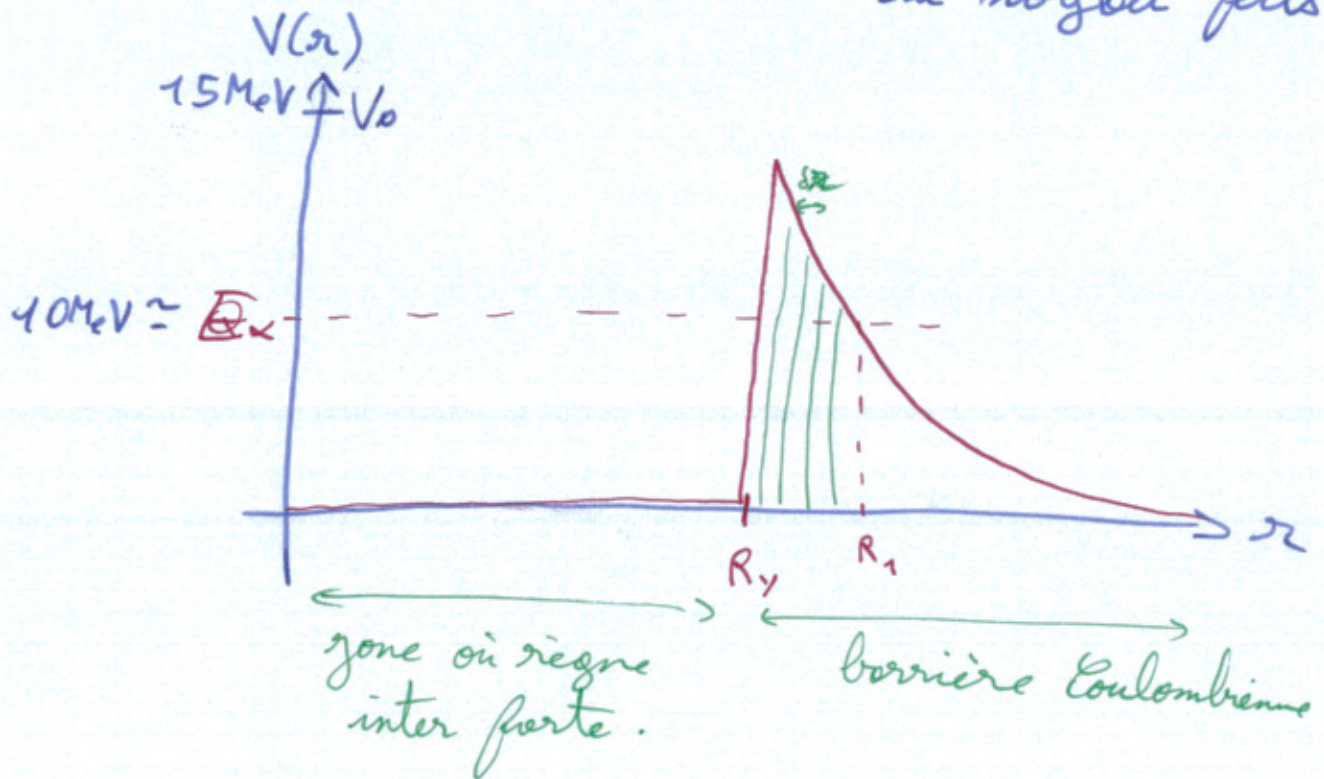 noyau fils
V(r)
15MeV V₀
δr
10MeV ≃ Qα
r
R_Y R₁
zone où règne
inter forte.
barrière Coulombienne